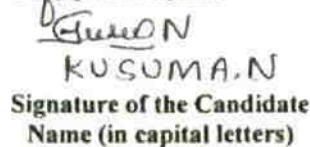 KUSUMA.N
Signature of the Candidate
Name (in capital letters)